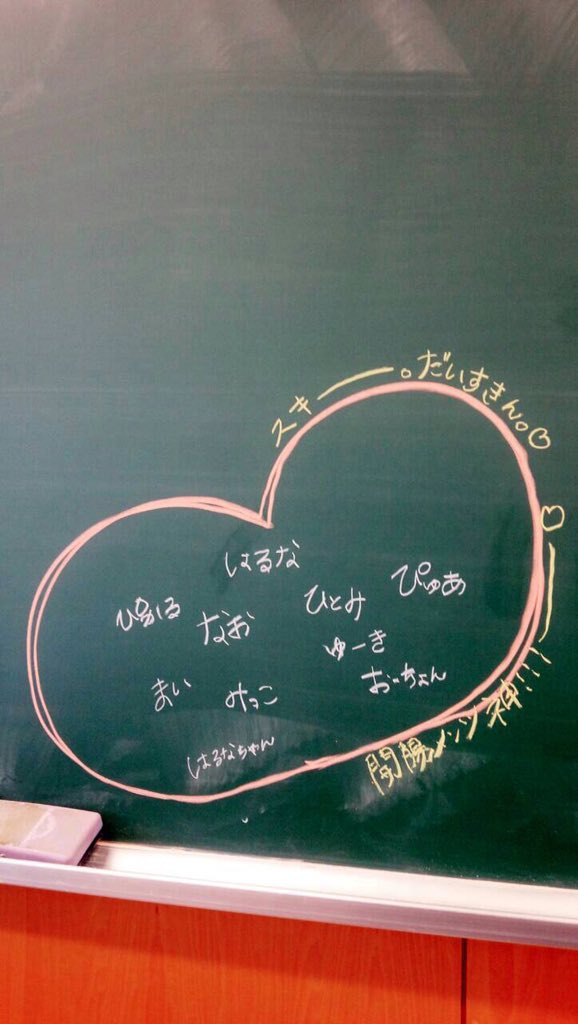 スキー。だいすきん。♡
はるな
ぴかる
なお
ひとみ
ぴゅあ
ゆーき
まい
みっこ
おーちょん
はるなちゃん
開陽メンツ神!!!ー♡